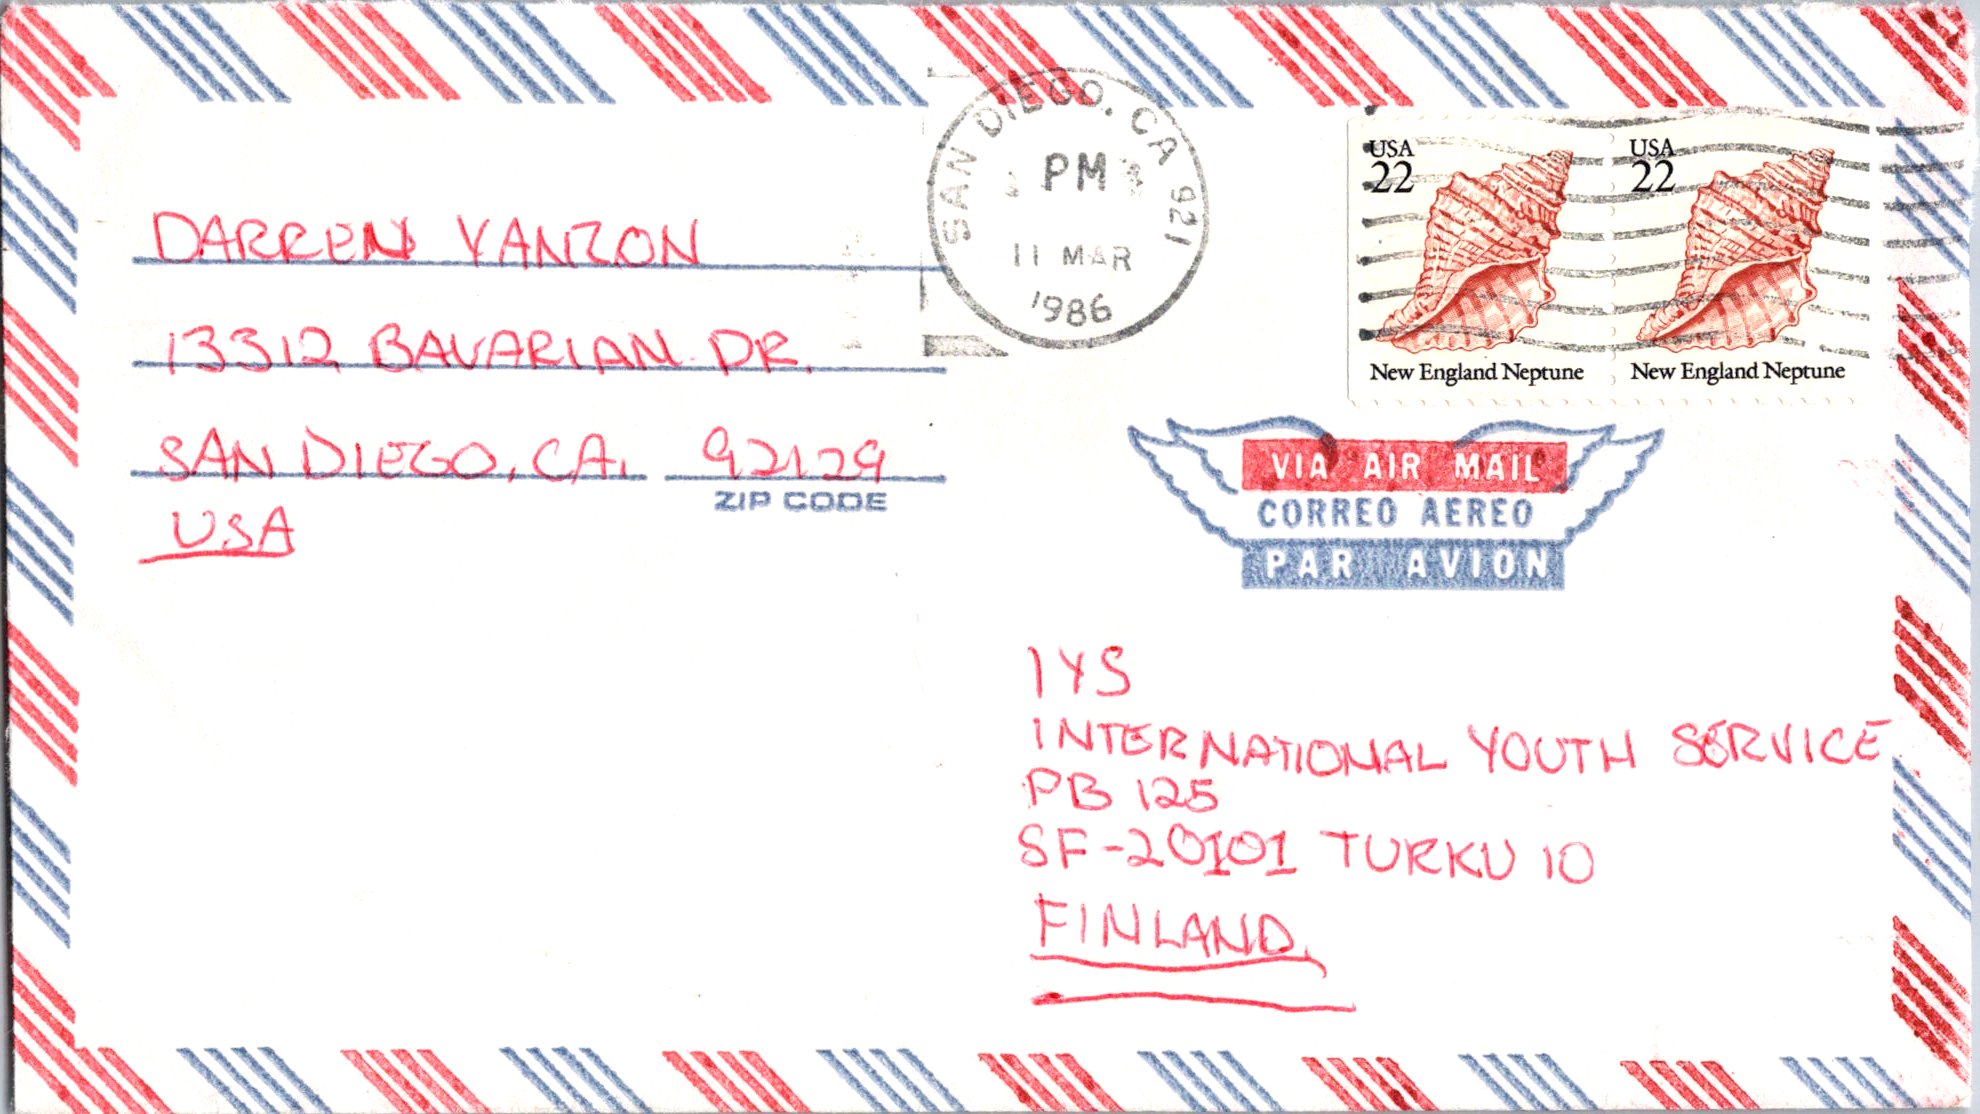 DARREN YANZON
13312 BAVARIAN DR.
SAN DIEGO, CA. 92129
ZIP CODE
USA
SAN DIEGO, CA 921
PM
11 MAR
1986
USA
22
New England Neptune
USA
22
New England Neptune
VIA AIR MAIL
CORREO AEREO
PAR AVION
IYS
INTERNATIONAL YOUTH SERVICE
PB 125
SF-20101 TURKU 10
FINLAND.